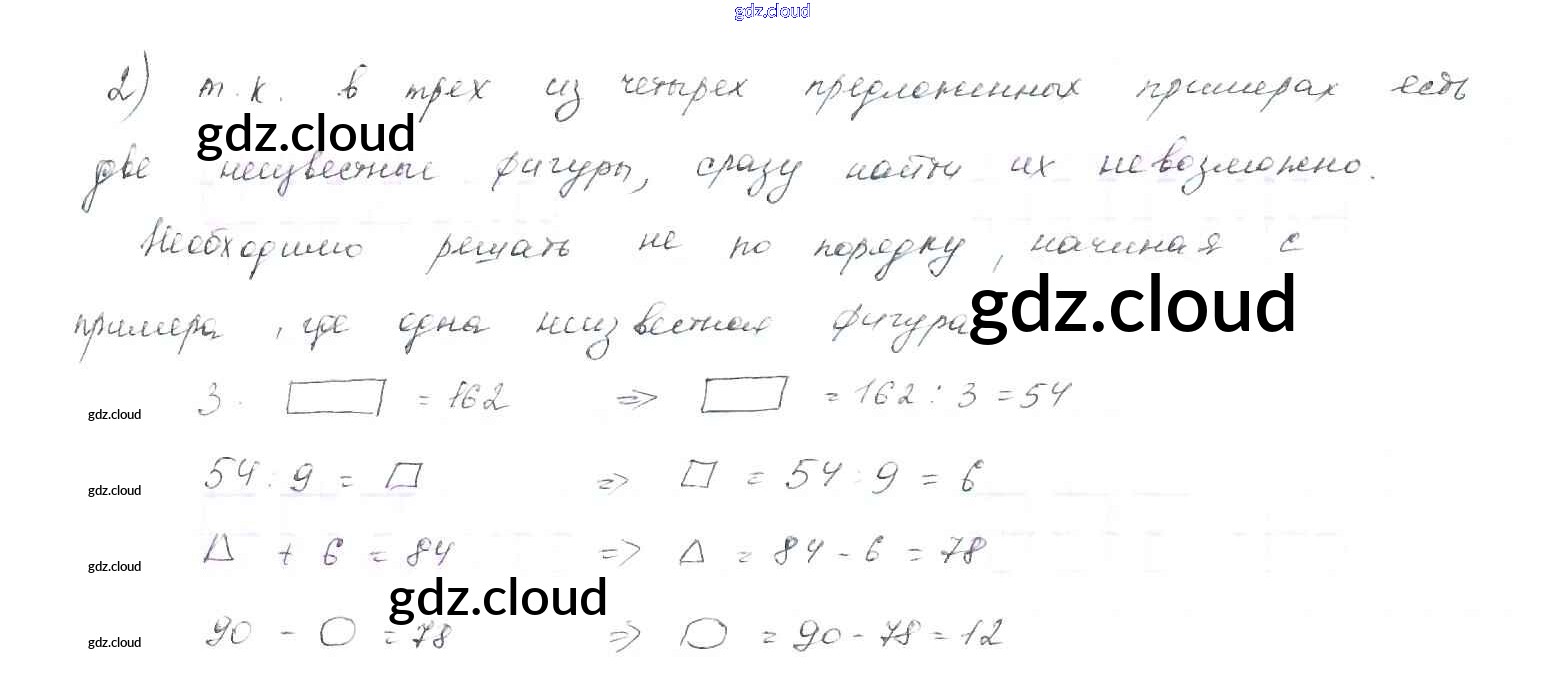 gdz.cloud
2) т.к. в трех из четырех предложенных примерах есть
gdz.cloud
две неизвестные фигуры, сразу найти их невозможно.
Необходимо решать не по порядку, начиная с
gdz.cloud
примера, где одна неизвестная фигура
gdz.cloud 3 · ▭ = 162 => ▭ = 162 : 3 = 54
gdz.cloud 54 : 9 = □ => □ = 54 : 9 = 6
gdz.cloud Δ + 6 = 84 => Δ = 84 - 6 = 78
gdz.cloud
gdz.cloud 90 - ○ = 78 => ○ = 90 - 78 = 12